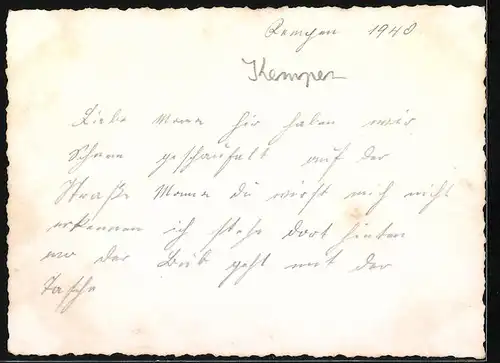 Kempen 1940
Kempen
Liebe Mama hir haben wir
Schnee geschaufelt auf der
Straße Mama du wirst mich nicht
erkennen ich stehe dort hinten
wo der Bub geht mit der
Tasche